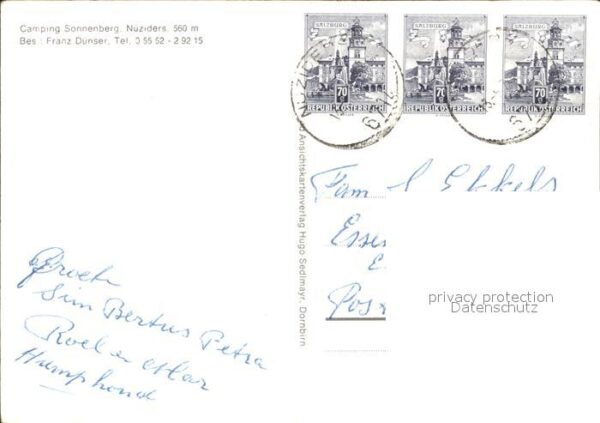 Camping Sonnenberg, Nüziders, 560 m
Bes.: Franz Dünser, Tel. 0 55 52 - 2 92 15
SALZBURG
70
REPUBLIK ÖSTERREICH
SALZBURG
70
REPUBLIK ÖSTERREICH
SALZBURG
70
REPUBLIK ÖSTERREICH
NÜZIDERS
67
Ansichtskartenverlag Hugo Sedlmayr, Dornbirn
Fam
Esse
Pos
privacy protection
Datenschutz
Groeten
Sim Bertus Petra
Roel en